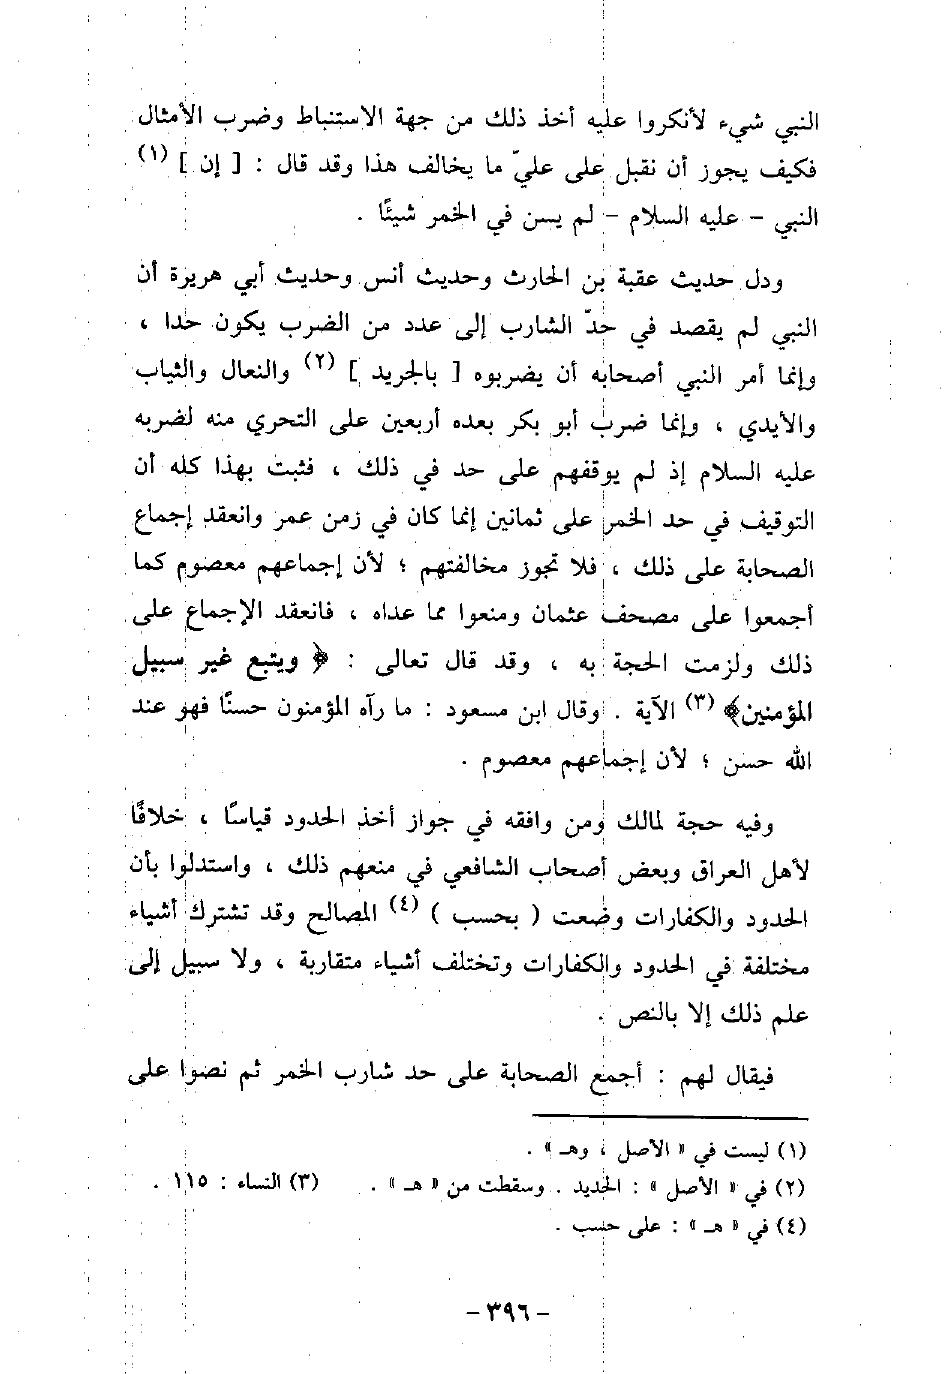 النبي شيء لأنكروا عليه أخذ ذلك من جهة الاستنباط وضرب الأمثال
فكيف يجوز أن نقبل على عليّ ما يخالف هذا وقد قال : [ إن ] (١)
النبي – عليه السلام – لم يسن في الخمر شيئًا .
ودل حديث عقبة بن الحارث وحديث أنس وحديث أبي هريرة أن
النبي لم يقصد في حدّ الشارب إلى عدد من الضرب يكون حدا ،
وإنما أمر النبي أصحابه أن يضربوه [ بالجريد ] (٢) والنعال والثياب
والأيدي ، وإنما ضرب أبو بكر بعده أربعين على التحري منه لضربه
عليه السلام إذ لم يوقفهم على حد في ذلك ، فثبت بهذا كله أن
التوقيف في حد الخمر على ثمانين إنما كان في زمن عمر وانعقد إجماع
الصحابة على ذلك ، فلا تجوز مخالفتهم ؛ لأن إجماعهم معصوم كما
أجمعوا على مصحف عثمان ومنعوا مما عداه ، فانعقد الإجماع على
ذلك ولزمت الحجة به ، وقد قال تعالى : ﴿ ويتبع غير سبيل
المؤمنين﴾ (٣) الآية . وقال ابن مسعود : ما رآه المؤمنون حسنًا فهو عند
الله حسن ؛ لأن إجماعهم معصوم .
وفيه حجة لمالك ومن وافقه في جواز أخذ الحدود قياسًا ، خلافًا
لأهل العراق وبعض أصحاب الشافعي في منعهم ذلك ، واستدلوا بأن
الحدود والكفارات وضعت ( بحسب ) (٤) المصالح وقد تشترك أشياء
مختلفة في الحدود والكفارات وتختلف أشياء متقاربة ، ولا سبيل إلى
علم ذلك إلا بالنص .
فيقال لهم : أجمع الصحابة على حد شارب الخمر ثم نصوا على
(١) ليست في « الأصل ، وهـ » .
(٢) في « الأصل » : الحديد . وسقطت من « هـ » . (٣) النساء : ١١٥ .
(٤) في « هـ » : على حسب .
– ٣٩٦ –